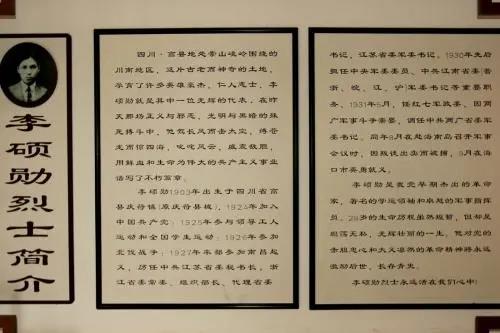 李硕勋烈士简介
四川·高县地处崇山峻岭围绕的
川南地区，这片古老而神奇的土地，
孕育了许多英雄豪杰、仁人志士，李
硕勋就是其中一位光辉的代表，在昨
天那场正义与邪恶、光明与黑暗的殊
死搏斗中，他驾长风而击太空，缚苍
龙而惊四海，叱咤风云，威震敌胆，
用鲜血和生命为伟大的共产主义事业
谱写了不朽篇章。
李硕勋1903年出生于四川省高
县庆符镇(原庆符县城)，1924年加入
中国共产党；1925年参与领导工人
运动和全国学生运动；1926年参加
北伐战争；1927年率部参加南昌起
义，历任中共江苏省委秘书长，浙江
省委常委、组织部长、代理省委
书记，江苏省委军委书记，1930年先后
担任中央军委委员、中共江南省委兼
浙、皖、辽、沪军委书记等重要职
务，1931年5月，任红七军政委，因两
广军事斗争需要，调任中共两广省委军
委书记，同年8月在赴海南岛召开军事
会议时，因叛徒出卖而被捕，9月在海
口市英勇就义。
李硕勋是我党早期杰出的革命
家，著名的学运领袖和卓越的军事指挥
员，28岁的生命历程虽然短暂，但却是
坦荡无私、光辉壮丽的一生，他对党的
赤胆忠心和大义凛然的革命精神将永远
激励后世，长存青史。
李硕勋烈士永远活在我们心中!